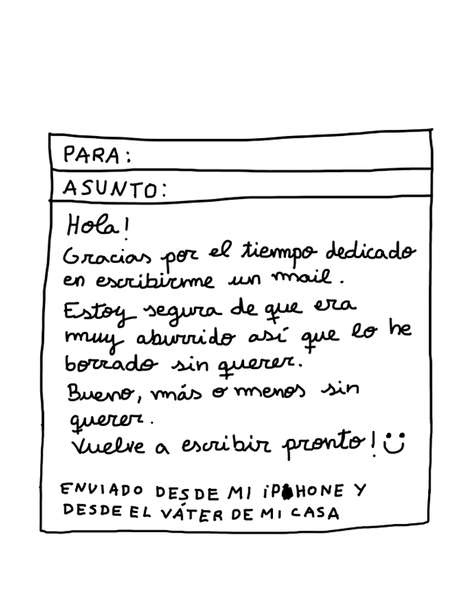 PARA:
ASUNTO:
Hola!
Gracias por el tiempo dedicado
en escribirme un mail.
Estoy segura de que era
muy aburrido así que lo he
borrado sin querer.
Bueno, más o menos sin
querer.
Vuelve a escribir pronto! :)
ENVIADO DESDE MI iPHONE Y
DESDE EL VÁTER DE MI CASA